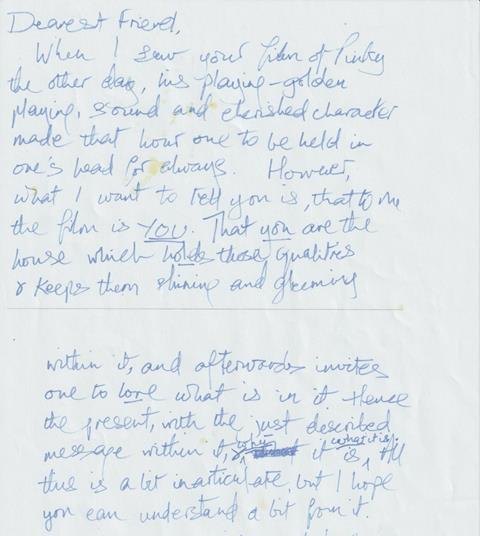 Dearest Friend,
When I saw your film of Pinky
the other day, his playing-golden
playing, sound and cherished character
made that hour one to be held in
one's head for always. However,
what I want to tell you is, that to me
the film is YOU. That you are the
house which holds those qualities
& keeps them shining and gleaming
within it, and afterwards invites
one to love what is in it. Hence
the present, with the just described
message within it, why it is what it is. All
this is a bit inarticulate, but I hope
you can understand a bit from it.